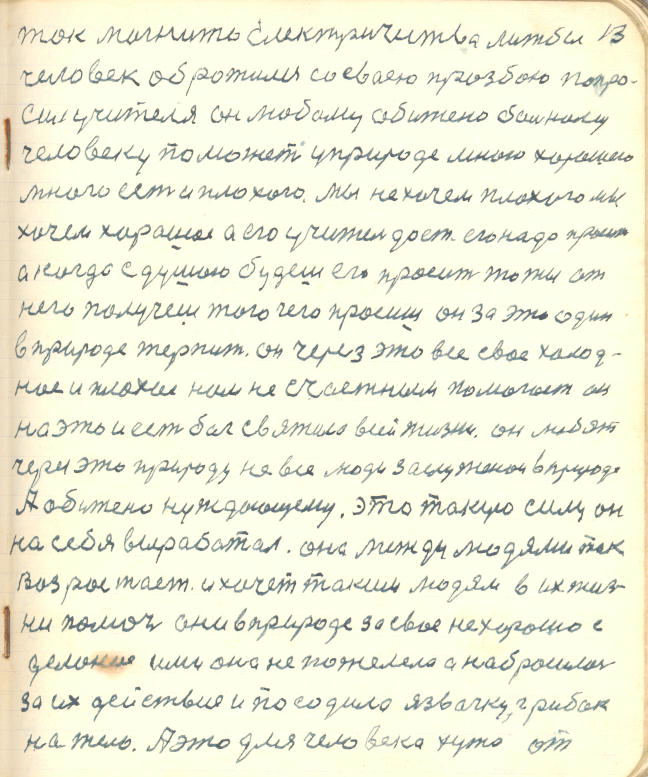 ток могнито електричитва литбы 13
человек обротился со сваею прозбою попро-
сил учителя он любому обижено болному
человеку поможет уприроде много хорошего
много ест и плохого. мы не хочем плохого мы
хочем хорошое а его учител дост. его надо просит
а когда с душою будеш его просит то ты от
него получеш того чего просиш он за это один
в природе терпит. он через это все свое холод-
ное и плохое ном не счастным помогает он
на это и ест бог святило всей жизни. он любят
через это природу не все люди заслуженои в природе
А обижено нуждающему. это такую силу он
на себя выработал. она между людями так
возростает. и хочет таким людям в их жиз-
ни помоч они в природе за свое нехорошо с
делоное ими она не пожелела а набросилос
за их действие и посодила язвачку, грибок
на тело. А это для человека хужо от